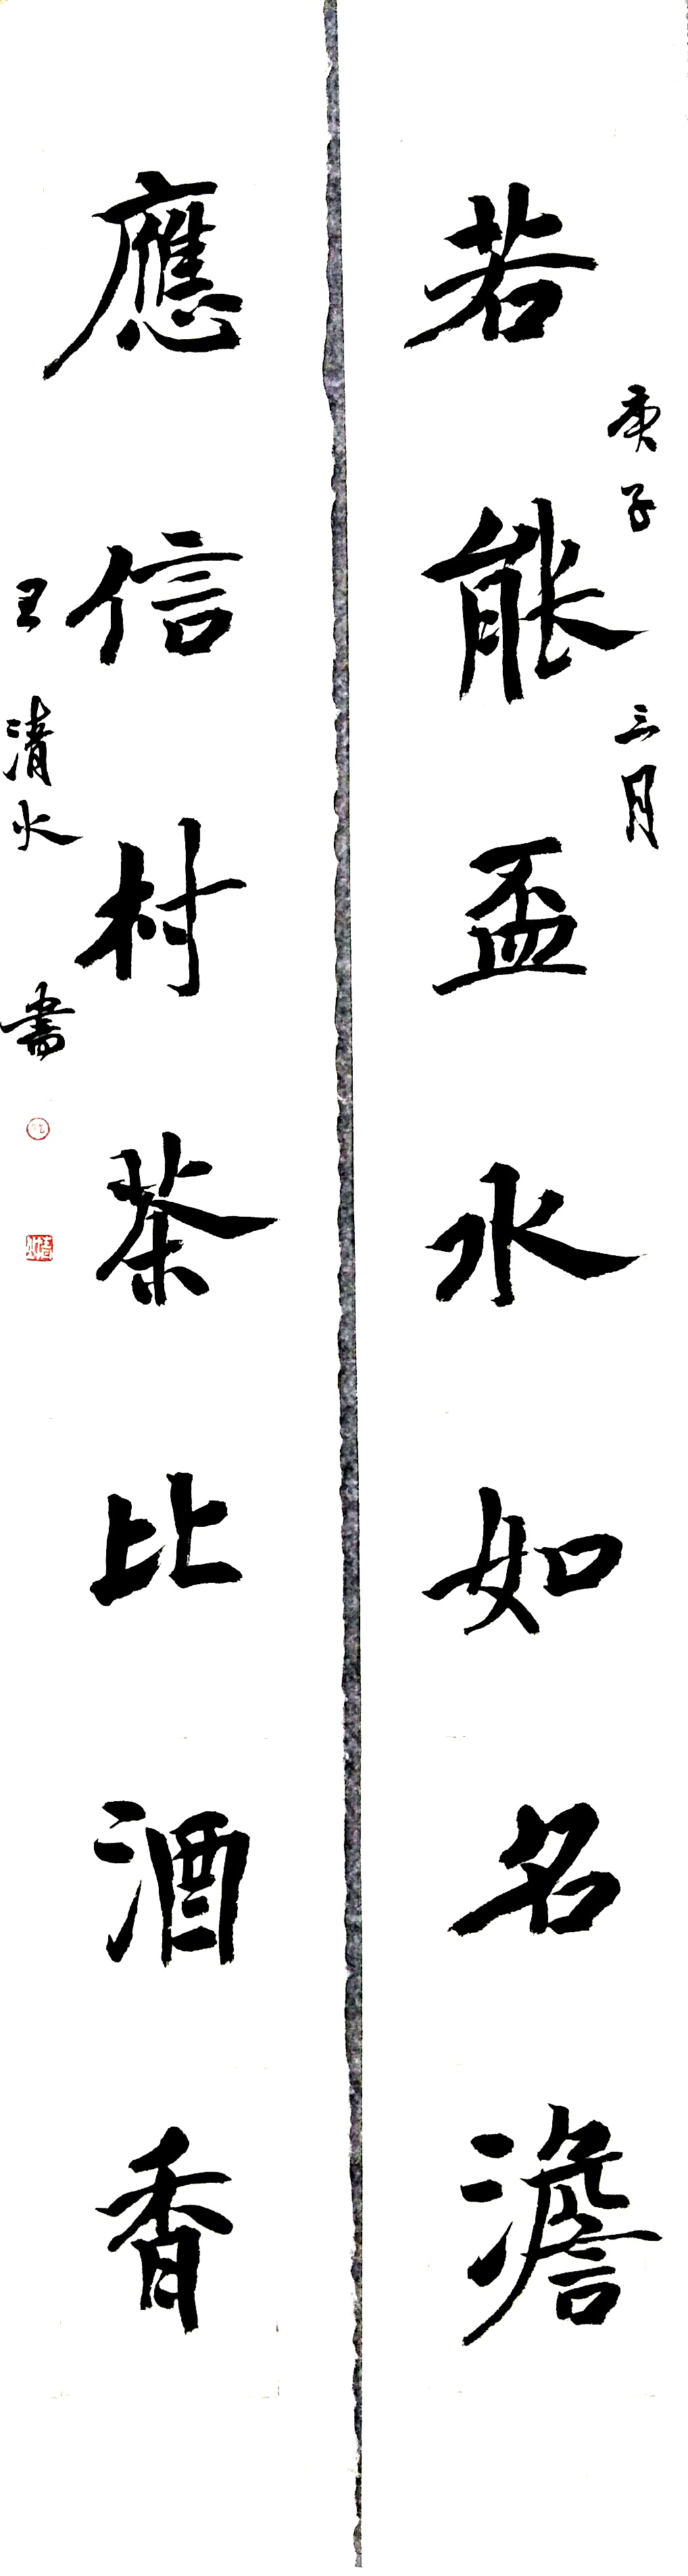 庚子三月
若能盃水如名澹
應信村茶比酒香
王清水書